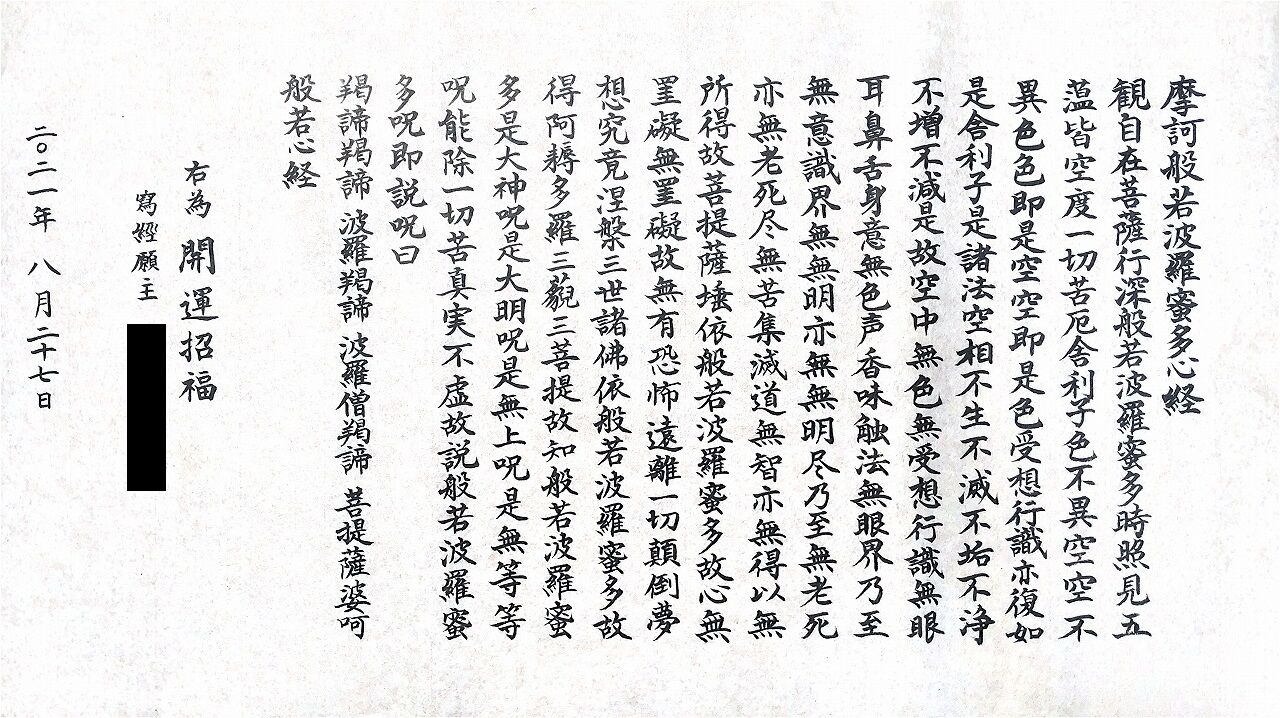 摩訶般若波羅蜜多心経
観自在菩薩行深般若波羅蜜多時照見五
薀皆空度一切苦厄舎利子色不異空空不
異色色即是空空即是色受想行識亦復如
是舎利子是諸法空相不生不滅不垢不浄
不増不減是故空中無色無受想行識無眼
耳鼻舌身意無色声香味触法無眼界乃至
無意識界無無明亦無無明尽乃至無老死
亦無老死尽無苦集滅道無智亦無得以無
所得故菩提薩埵依般若波羅蜜多故心無
罣礙無罣礙故無有恐怖遠離一切顛倒夢
想究竟涅槃三世諸佛依般若波羅蜜多故
得阿耨多羅三藐三菩提故知般若波羅蜜
多是大神呪是大明呪是無上呪是無等等
呪能除一切苦真実不虚故説般若波羅蜜
多呪即説呪曰
羯諦羯諦 波羅羯諦 波羅僧羯諦 菩提薩婆呵
般若心経
右為 開運招福
寫經願主
二〇二一年 八月二十七日